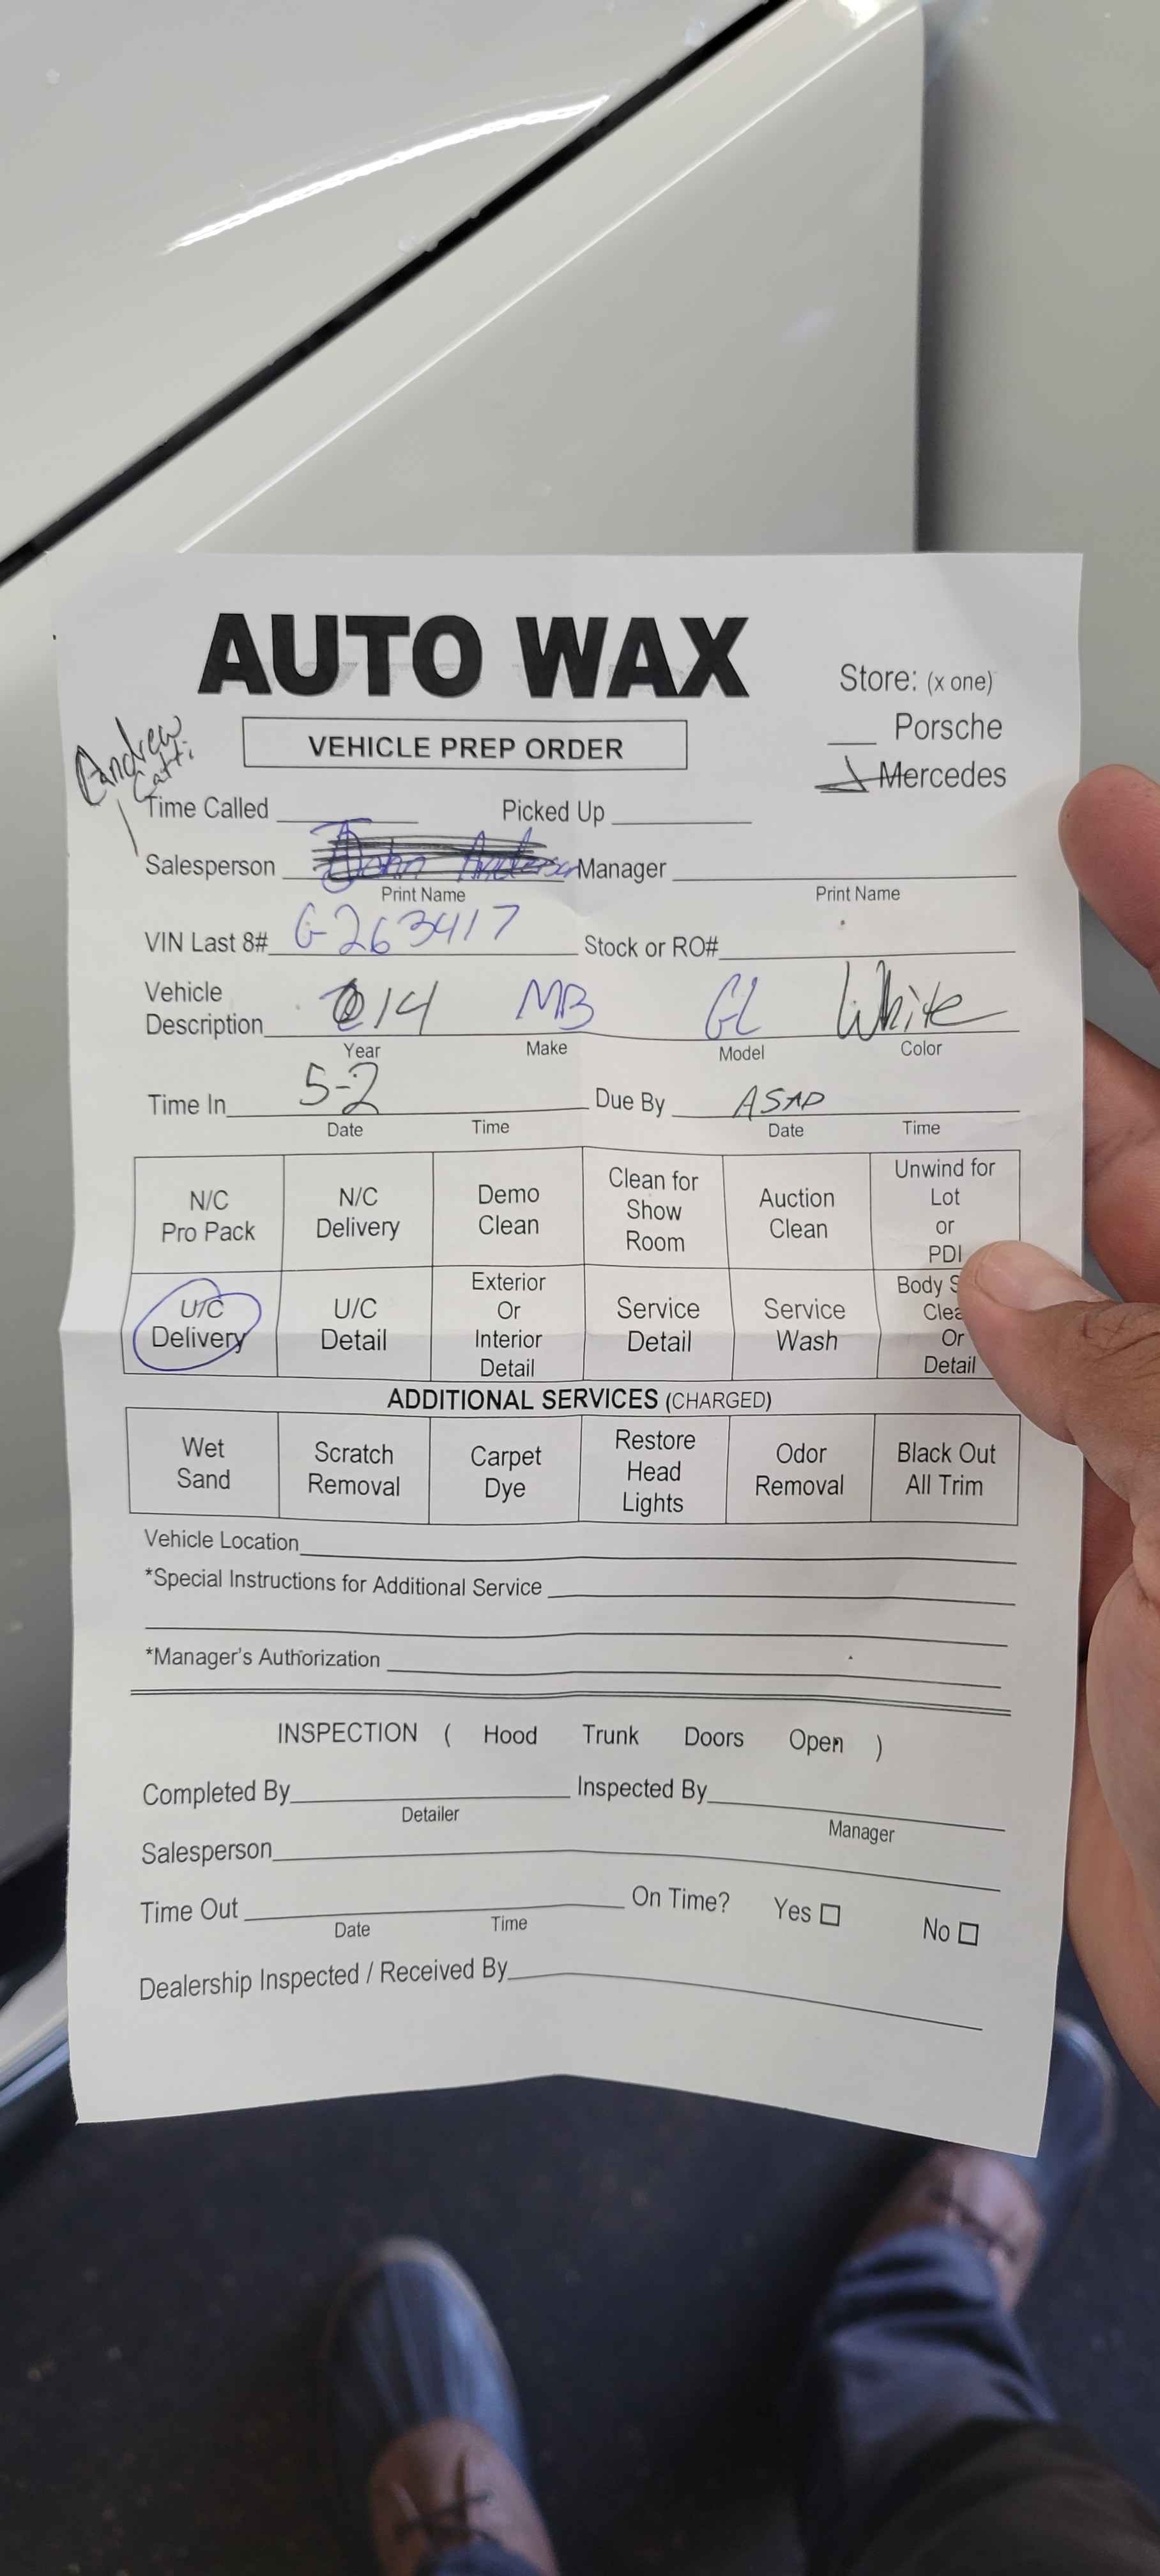 AUTO WAX
Store: (x one)
VEHICLE PREP ORDER
___ Porsche
Mercedes
Andrew
Time Called Picked Up
Salesperson John Manager
Print Name Print Name
VIN Last 8# G263417 Stock or RO#
Vehicle
Description 14 MB GL White
Year Make Model Color
Time In 5-2 Due By ASAP
Date Time Date Time
N/C Pro Pack N/C Delivery Demo Clean Clean for Show Room Auction Clean Unwind for Lot or PDI
U/C Delivery U/C Detail Exterior Or Interior Detail Service Detail Service Wash Body Or Detail
ADDITIONAL SERVICES (CHARGED)
Wet Sand Scratch Removal Carpet Dye Restore Head Lights Odor Removal Black Out All Trim
Vehicle Location
*Special Instructions for Additional Service
*Manager's Authorization
INSPECTION ( Hood Trunk Doors Open )
Completed By Inspected By
Detailer Manager
Salesperson
Time Out On Time? Yes ☐ No ☐
Date Time
Dealership Inspected / Received By